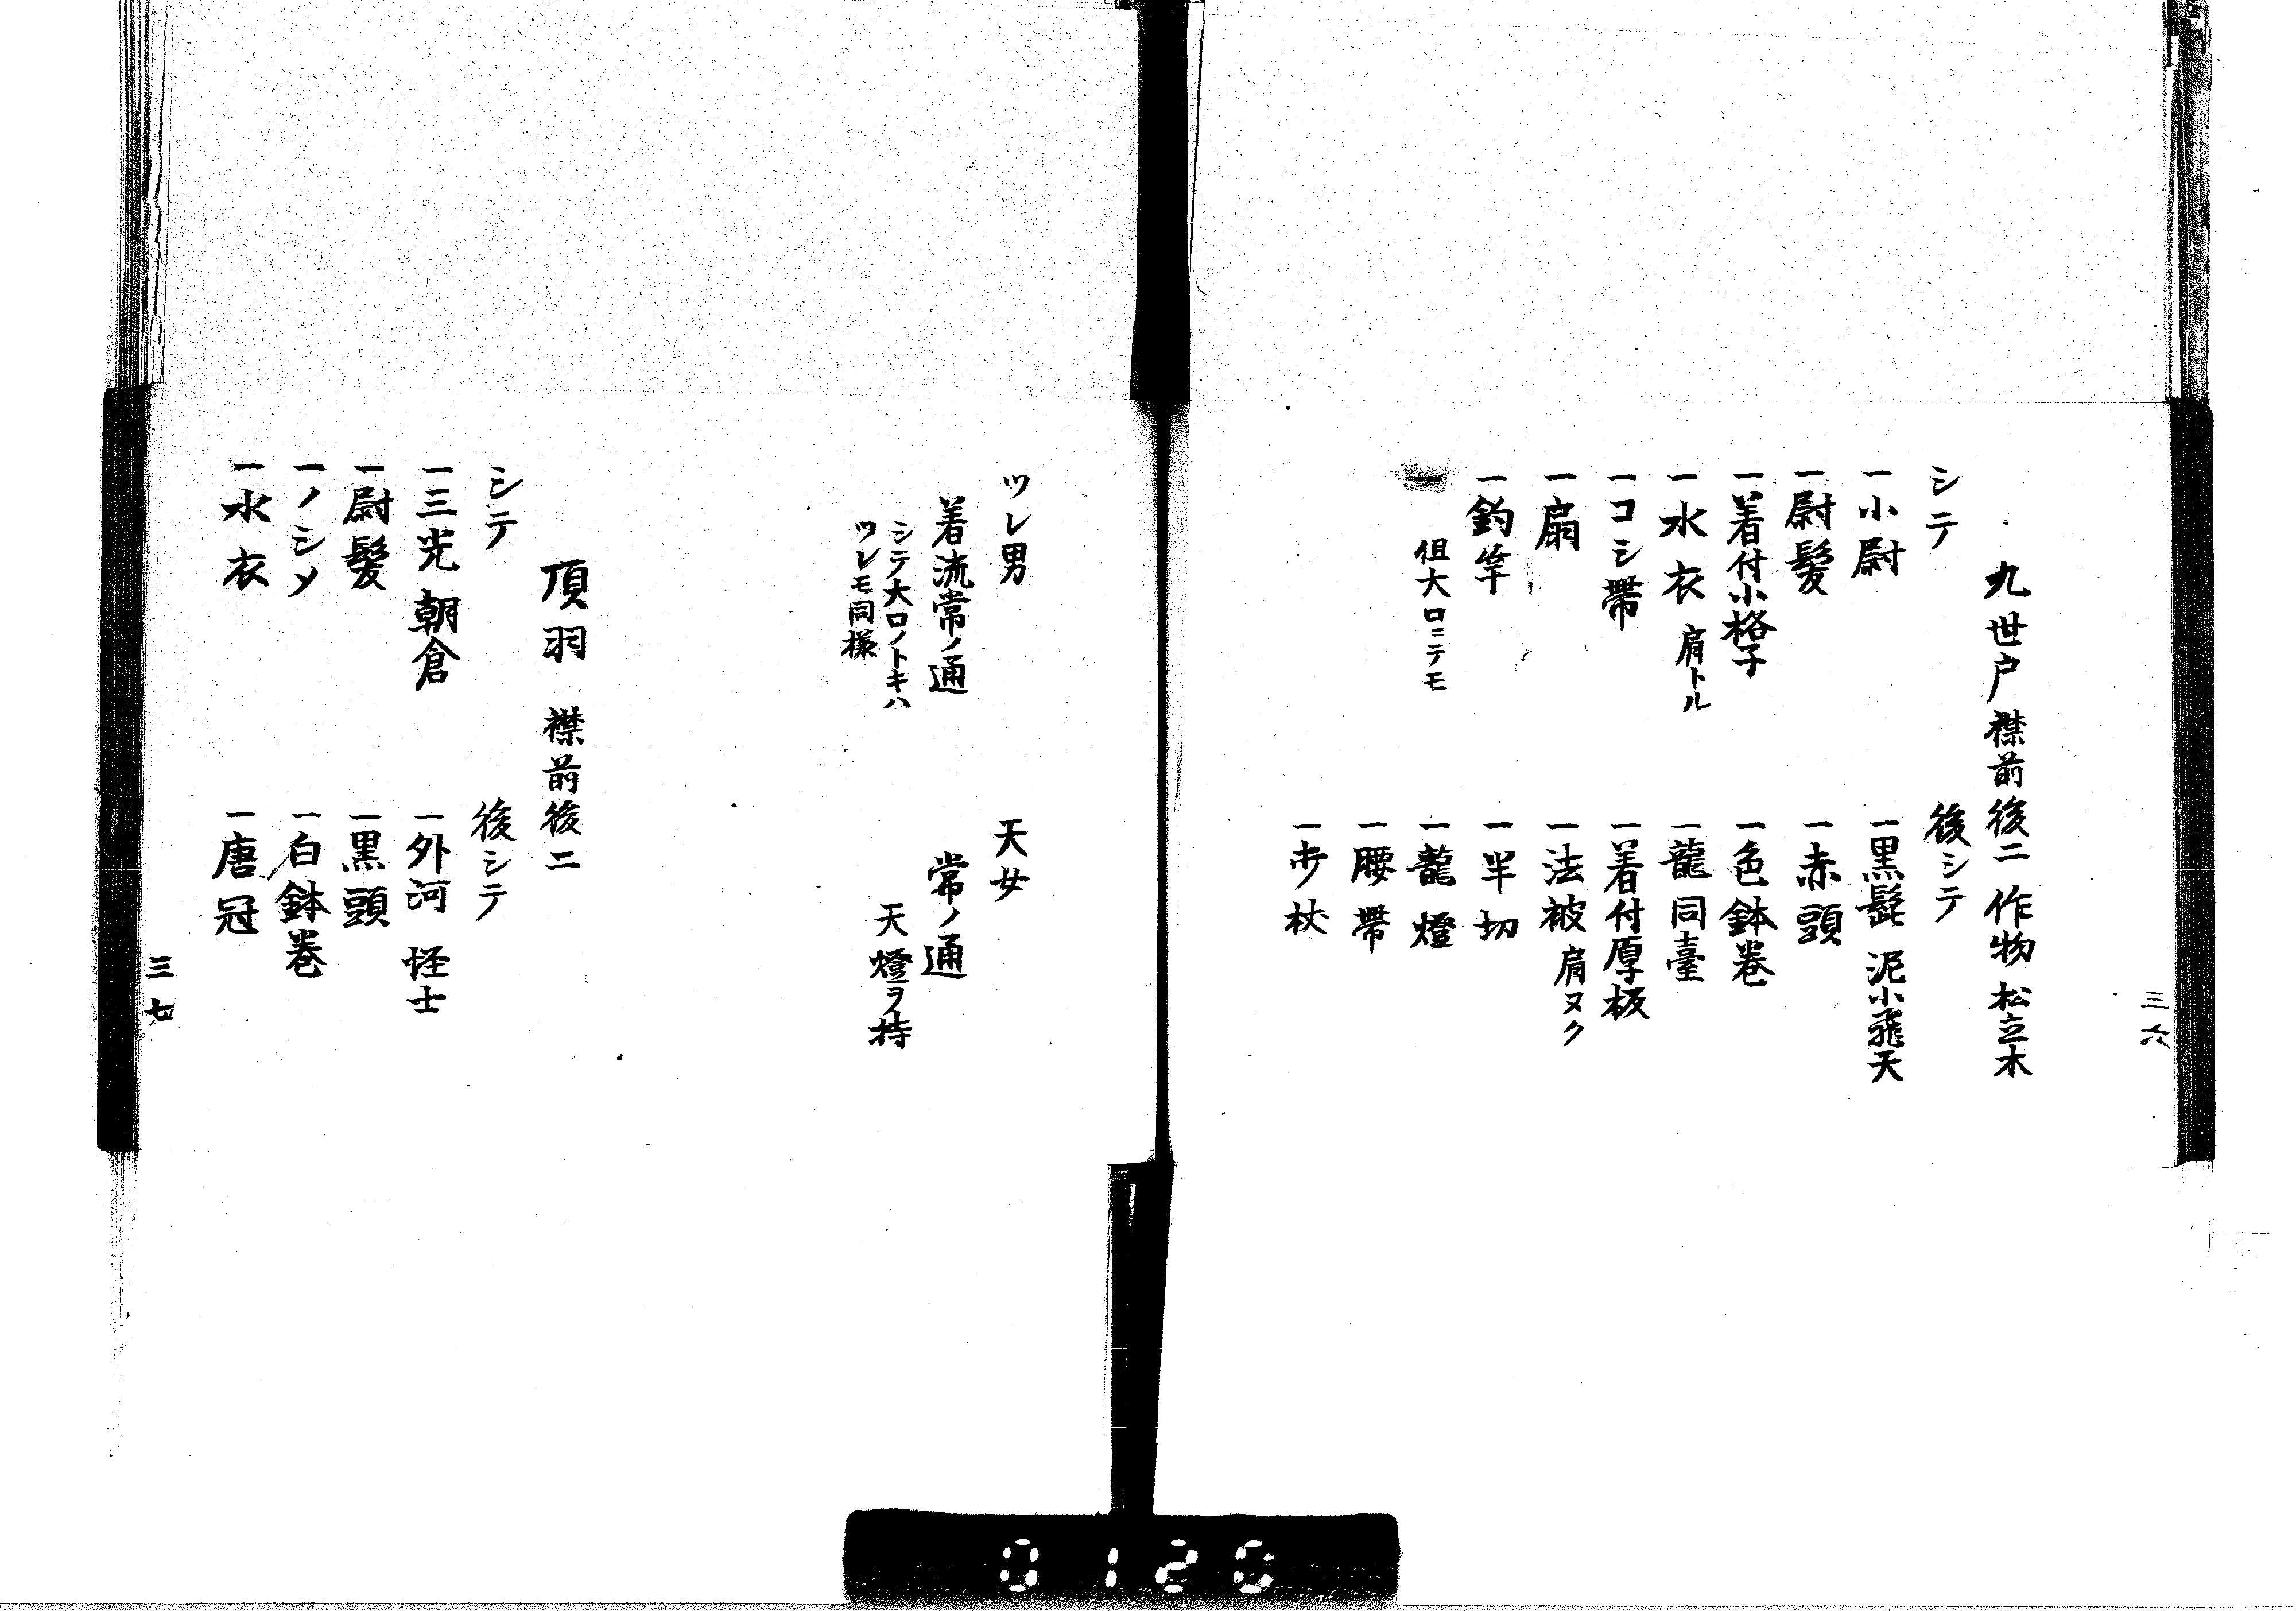 三六
九世戸 襟前後二 作物 松立木
シテ
一小尉
一尉髪
一着付小格子
一水衣 肩トル
一コシ帯
一扇
一釣竿
但大口ニテモ
後シテ
一黒髭 泥小飛天
一赤頭
一色鉢巻
一龍同臺
一着付厚板
一法被 肩ヌク
一半切
一龍燈
一腰帯
一歩杖
ツレ男
着流常ノ通
シテ大口ノトキハ
ツレモ同様
天女
常ノ通
天燈ヲ持
頂羽 襟前後二
シテ
一三光 朝倉
一尉髪
一ノシメ
一水衣
後シテ
一外河 怪士
一黒頭
一白鉢巻
一唐冠
三七
0120